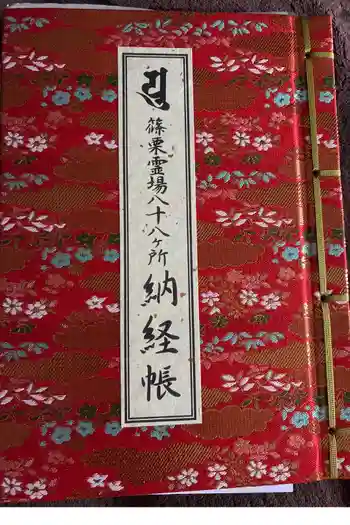 𑖀 篠栗霊場八十八ヶ所 納経帳